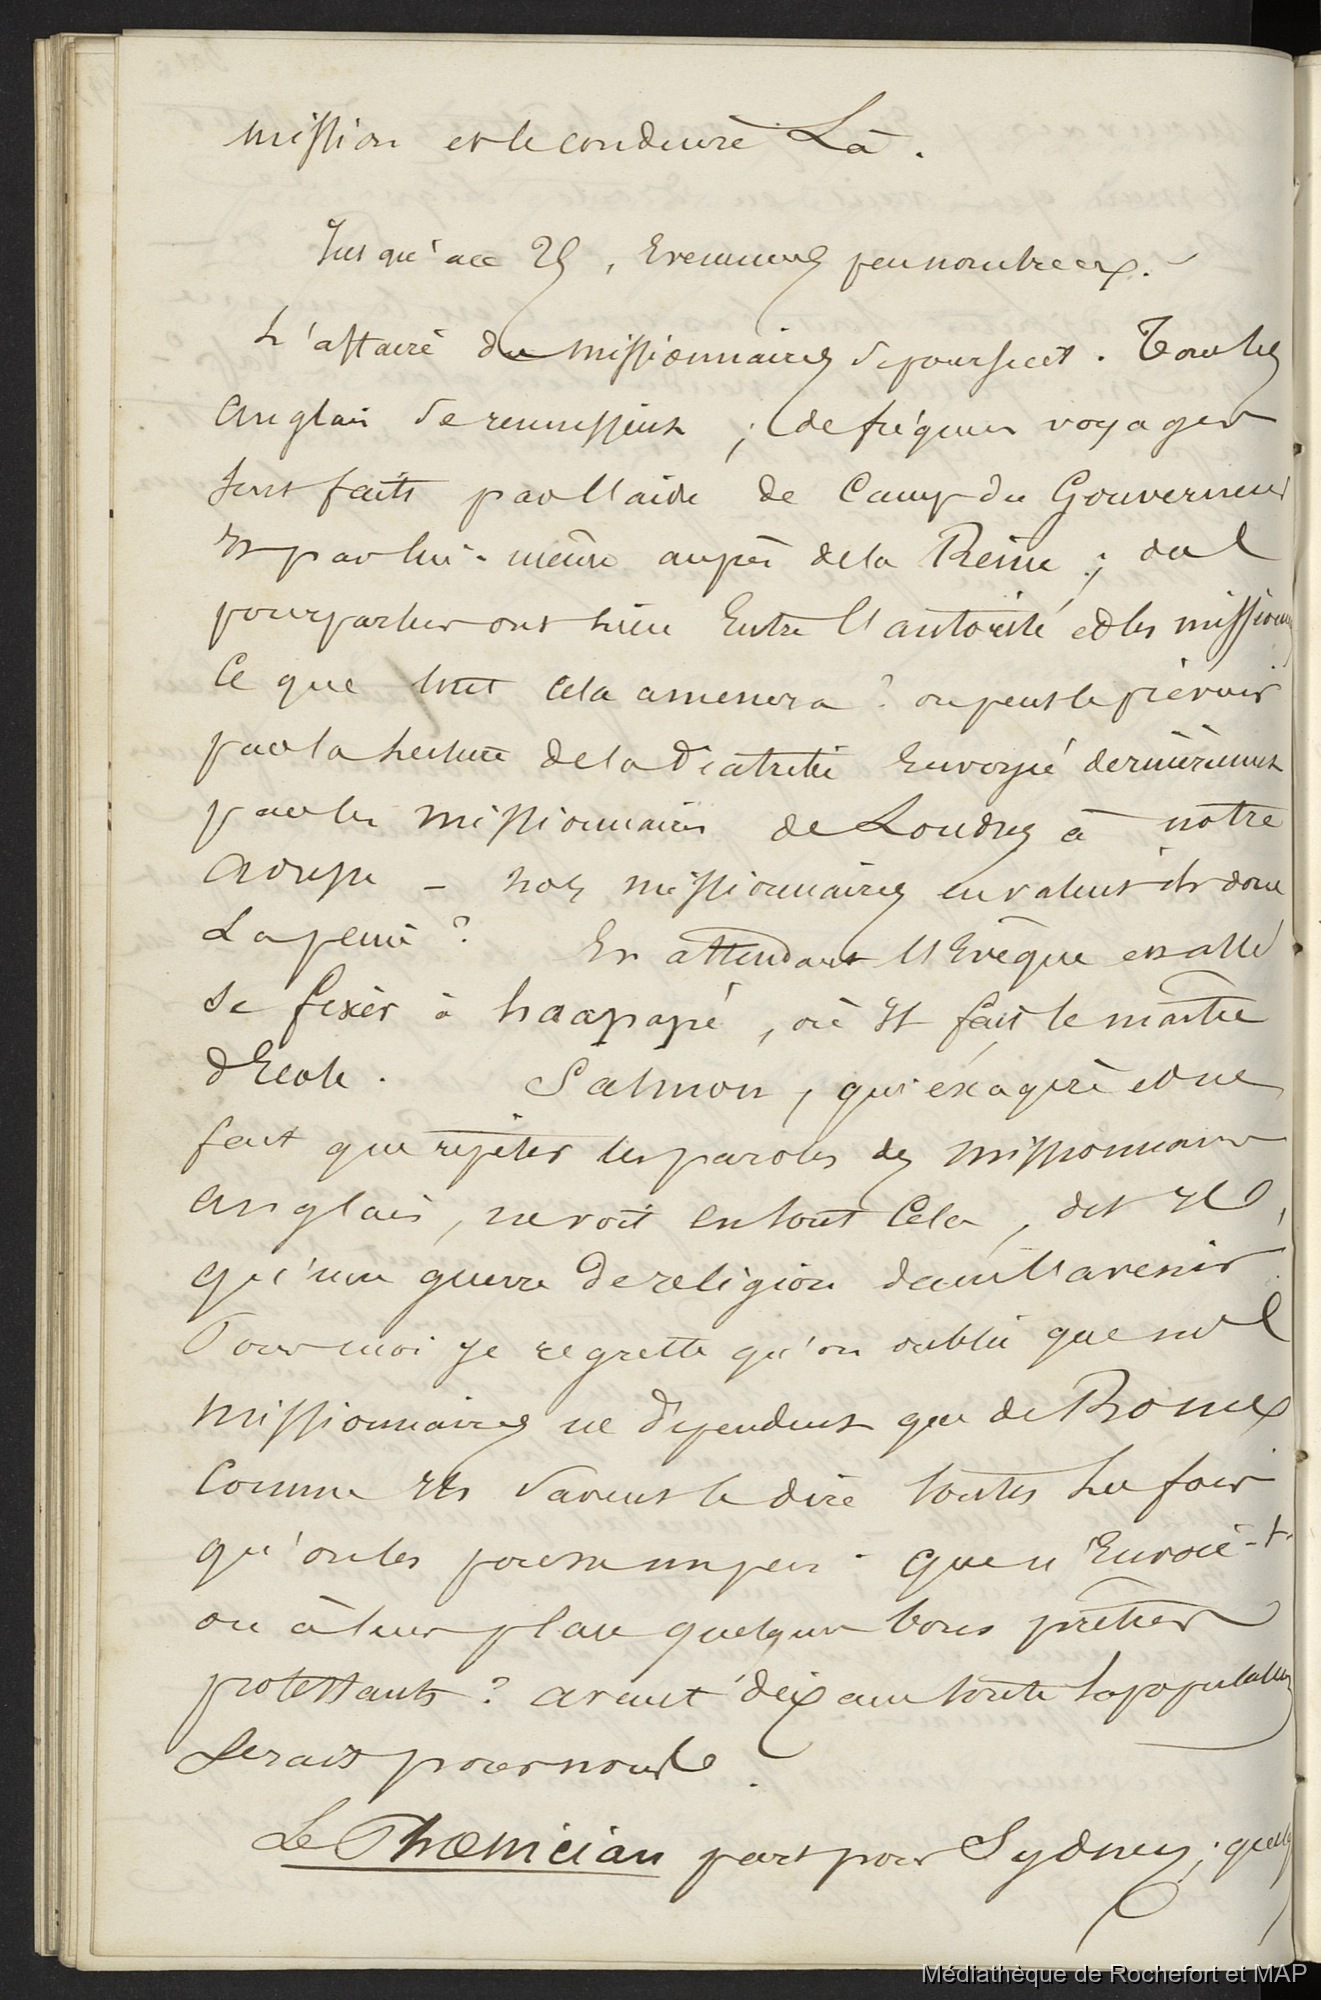 mission et le conduire Là.
Jusqu'au 29, Evenemens peu nombreux.
L'affaire du missionnaires se poursuit. Tous les
anglais se reunissent ; de fréquens voyages
sont faits par l'aide de Camp du Gouverneur
et par lui-même auprès de la Reine ; des
pourparlers ont lieu Entre l'autorité et les missionn
Ce que tout cela amenera ? on peut le prévoir
par la lecture de la Diatribe Envoyée dernièrement
par les missionnaires de Londres à notre
adresse - nos missionnaires en valent ils donc
La peine ? En attendant l'Evêque est allé
se fixer à haapapé, où Il fait le maitre
d'Ecole. Salmon, qui exagère et ne
fait que répéter les paroles des missionnaires
anglais, ne voit en tout Cela, dit Il,
qu'une guerre de religion dans l'avenir
Pour moi je regrette qu'on oublie que nos
missionnaires ne dépendent que de Rome
Comme Ils savent le dire toutes Les fois
qu'on les pousse un peu. que n'Envoie-t-
on à leur place quelques bons prêtres
protestants ? avant dix ans toute la population
serait pour nous.
Le Phœnician part pour Sydney ;
Médiathèque de Rochefort et MAP